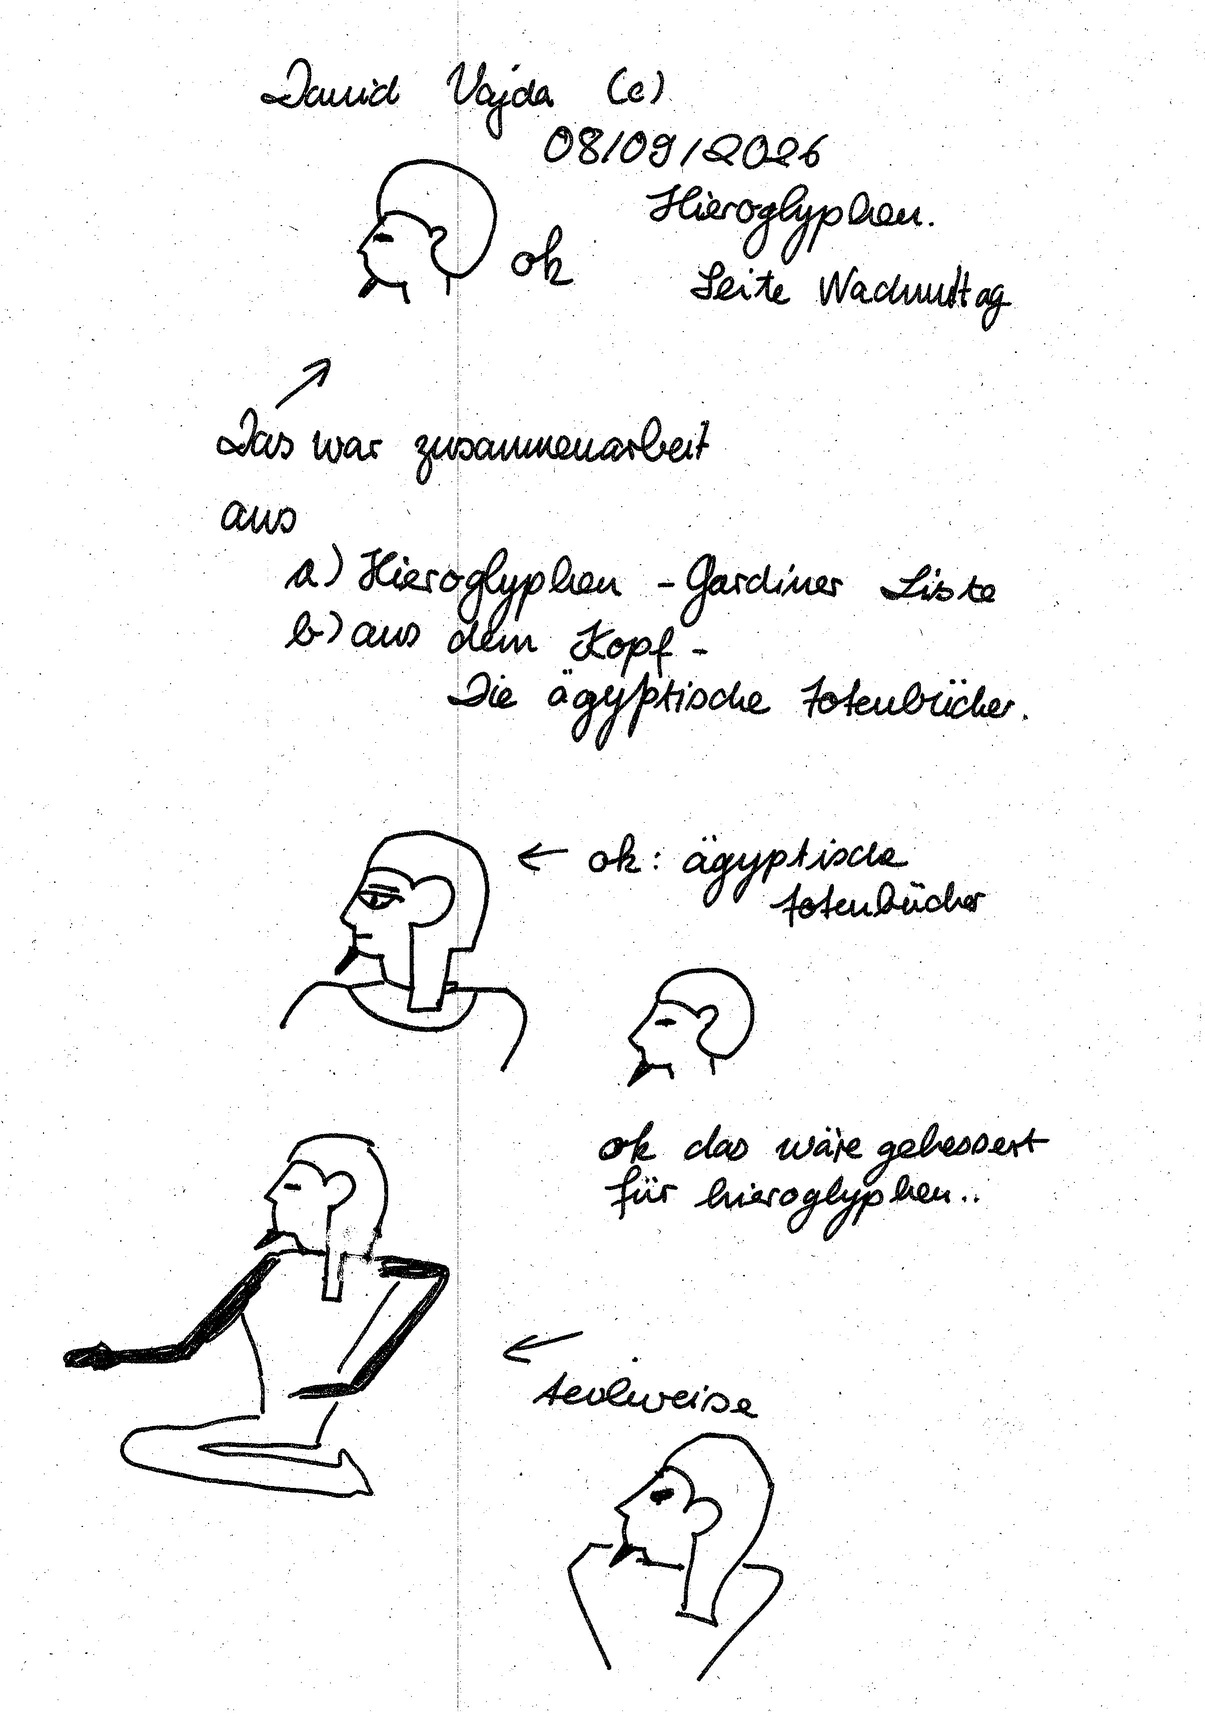 David Vajda (c)
08/09/2026
Hieroglyphen.
ok
Seite
Das war zusammenarbeit
aus
a) Hieroglyphen - Gardiner Liste
b) aus dem Kopf -
Die ägyptische totenbücher.
← ok: ägyptische
totenbücher
ok das wäre gebessert
für hieroglyphen..